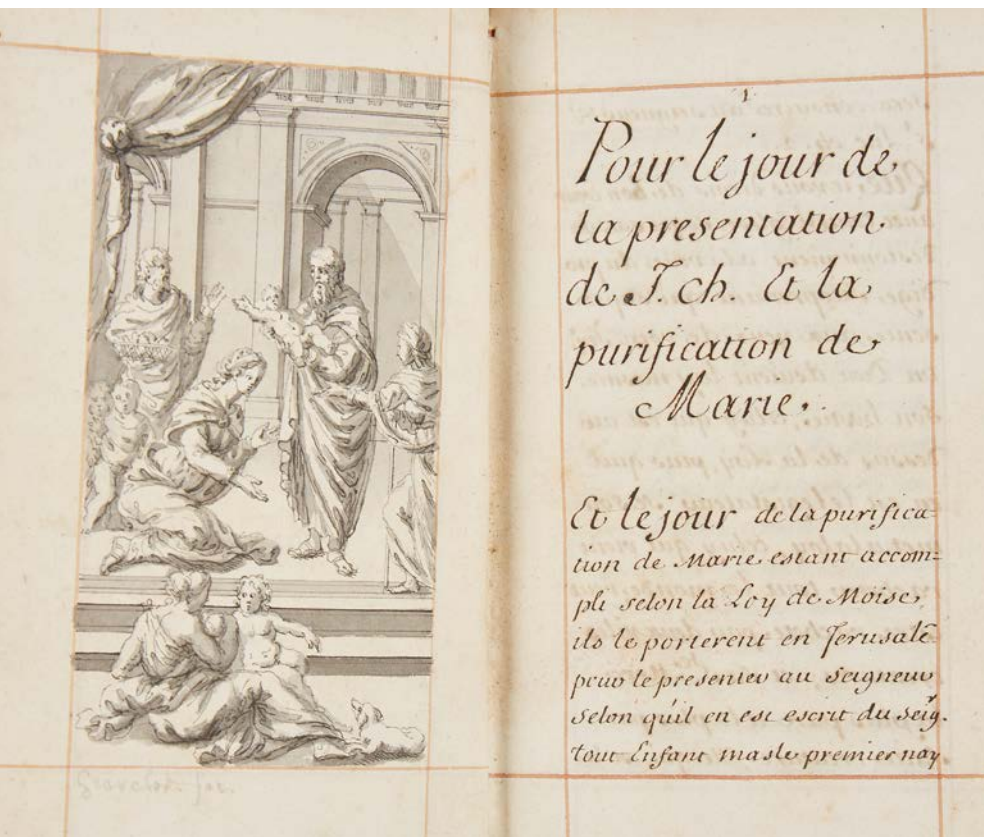 1
Pour le jour de
la presentation
de J. ch. Et la
purification de
Marie.
Et le jour de la purifica=
tion de Marie estant accom=
pli selon la Loy de Moise,
ils le porterent en Jerusalē
pour le presenter au Seigneur
selon qu'il en est escrit du seig.r
tout Enfant masle premier nay